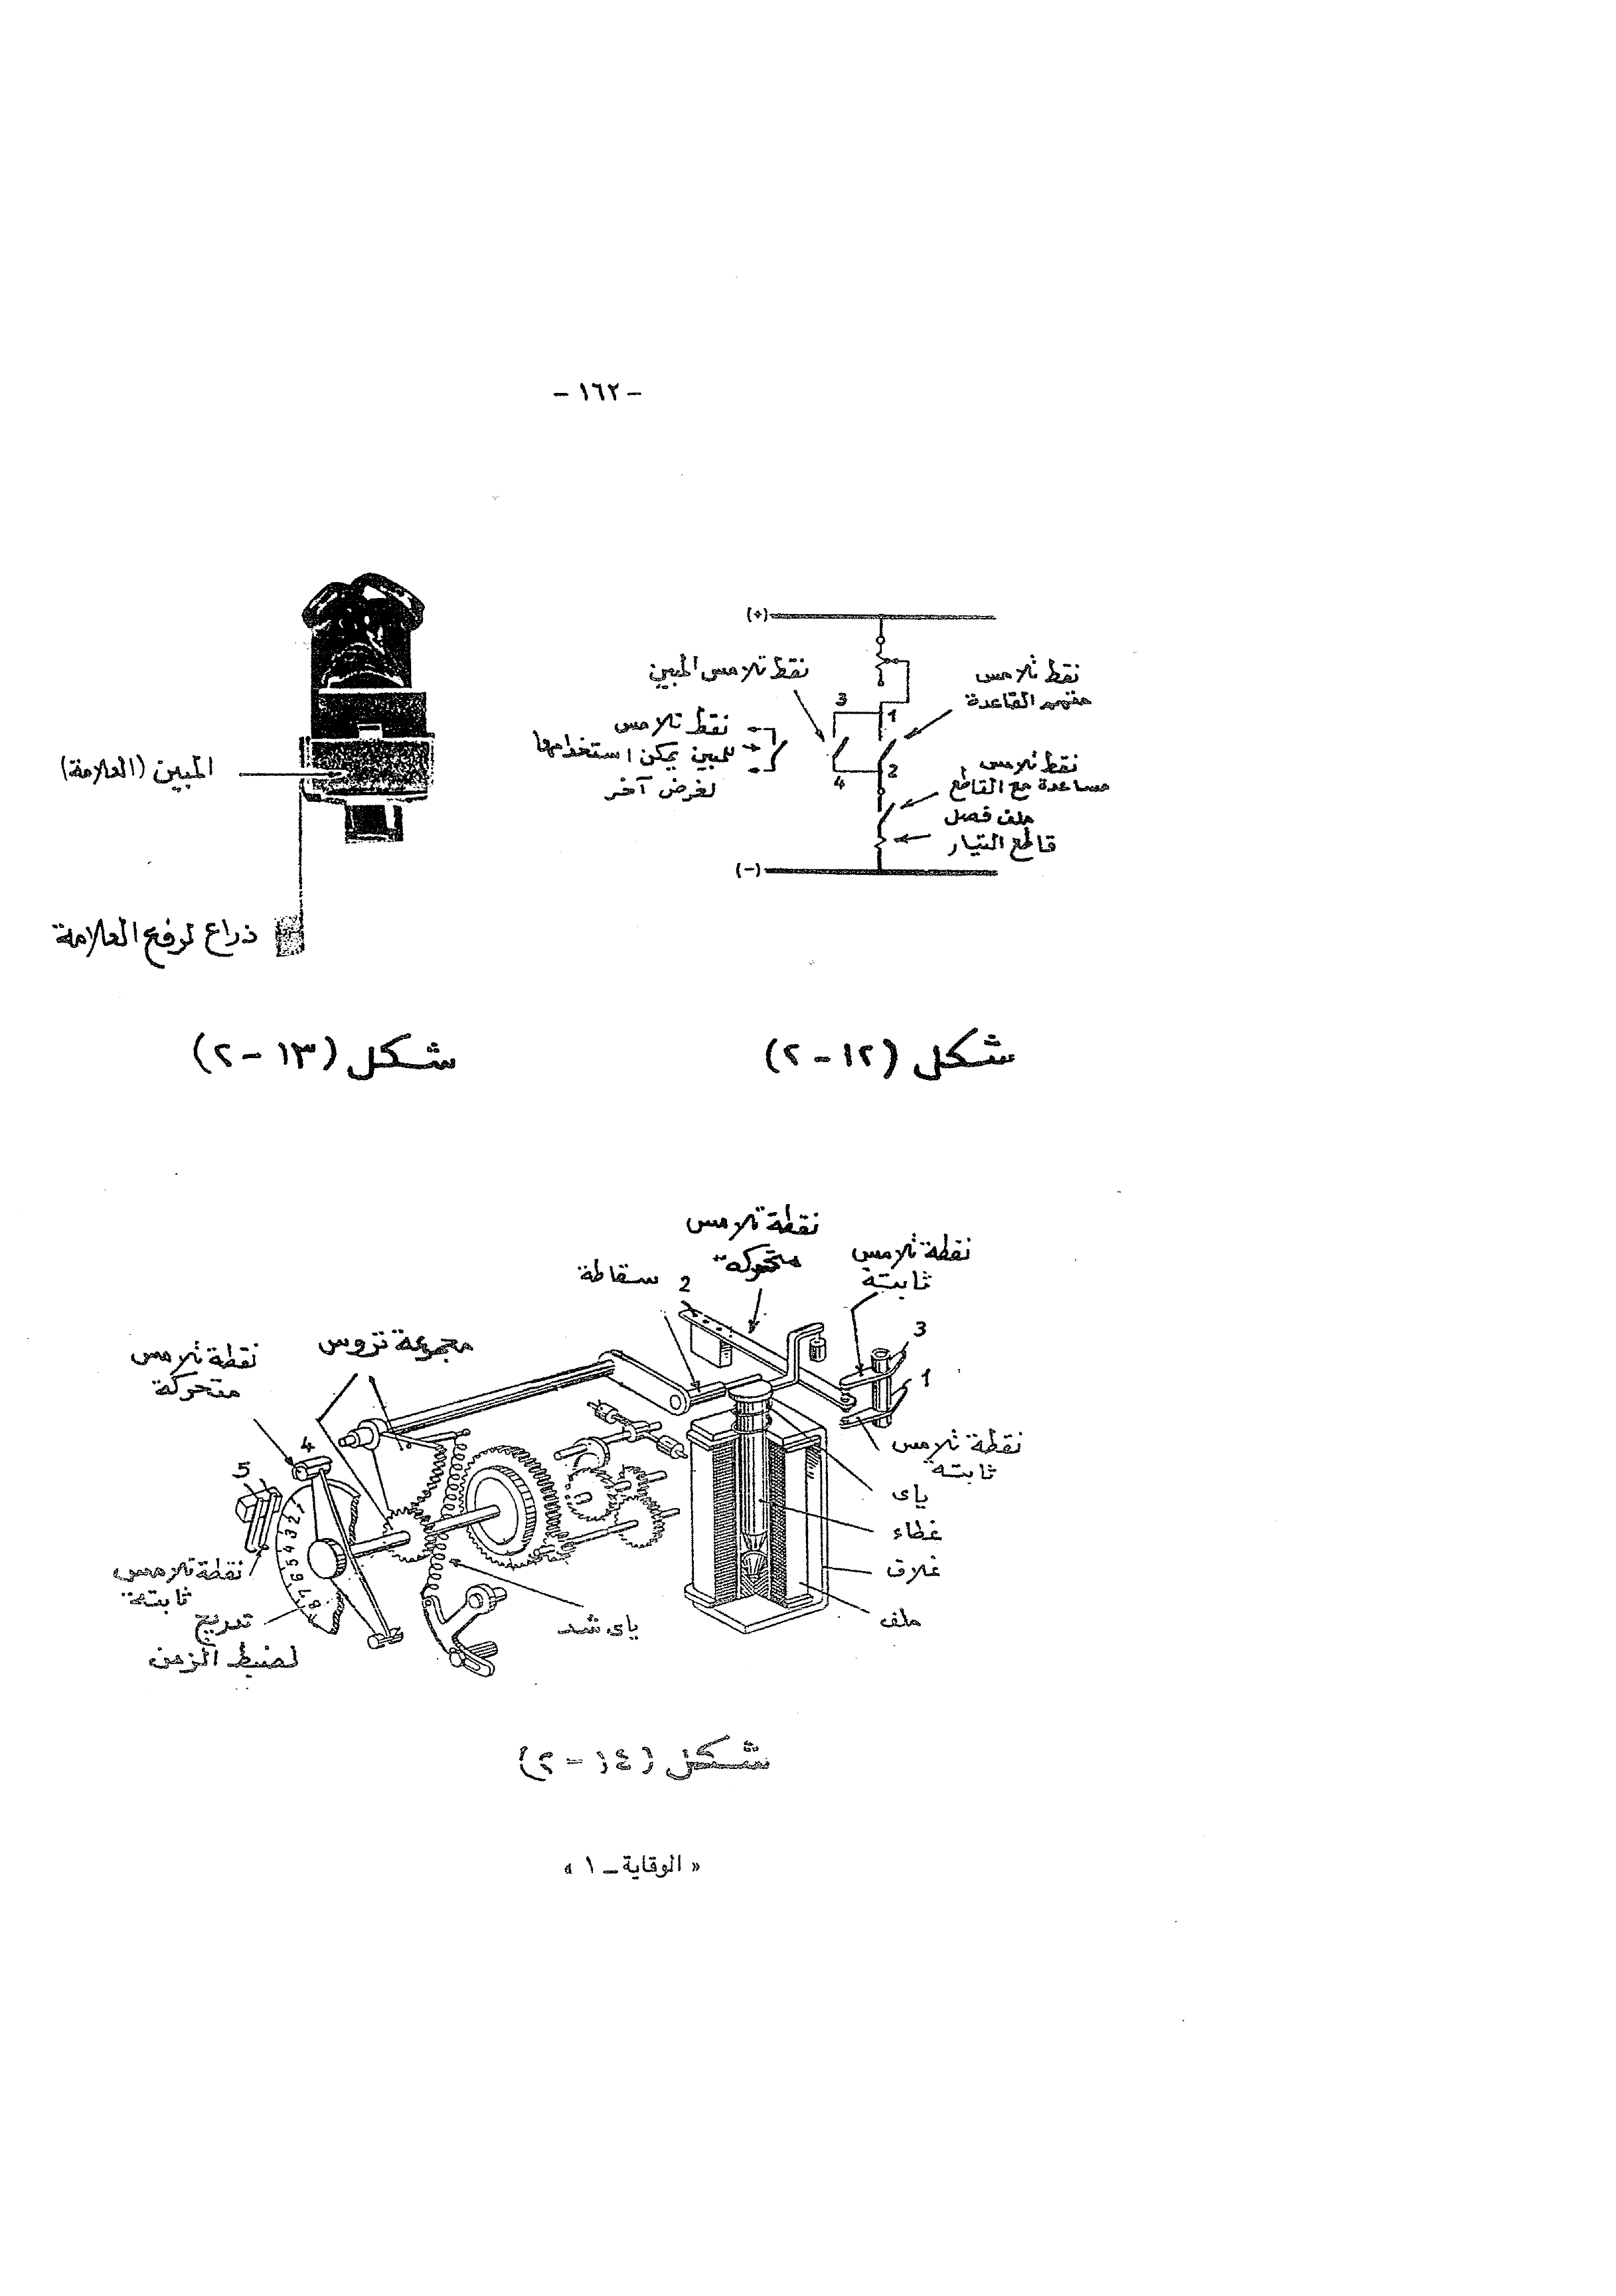 – ١٦٢ –
(+)
نقط تلامس المبين
نقط تلامس
القاعدة
3
1
نقط تلامس
للمبين يمكن استخدامها
لغرض آخر
4
2
نقط تلامس
مساعدة مع القاطع
ملف فصل
قاطع التيار
(–)
المبين (العلامة)
ذراع لرفع العلامة
شكل (١٢ – ٢)
شكل (١٣ – ٢)
نقطة تلامس
متحركة
نقطة تلامس
ثابتة
سقاطة
2
3
1
مجموعة تروس
نقطة تلامس
متحركة
4
5
نقطة تلامس
ثابتة
ياى
غطاء
غلاف
ملف
1 2 3 4 5 6 7 8
نقطة تلامس
ثابتة
تدريج
لضبط الزمن
ياى شد
شكل (١٤ – ٢)
« الوقاية – ١ »